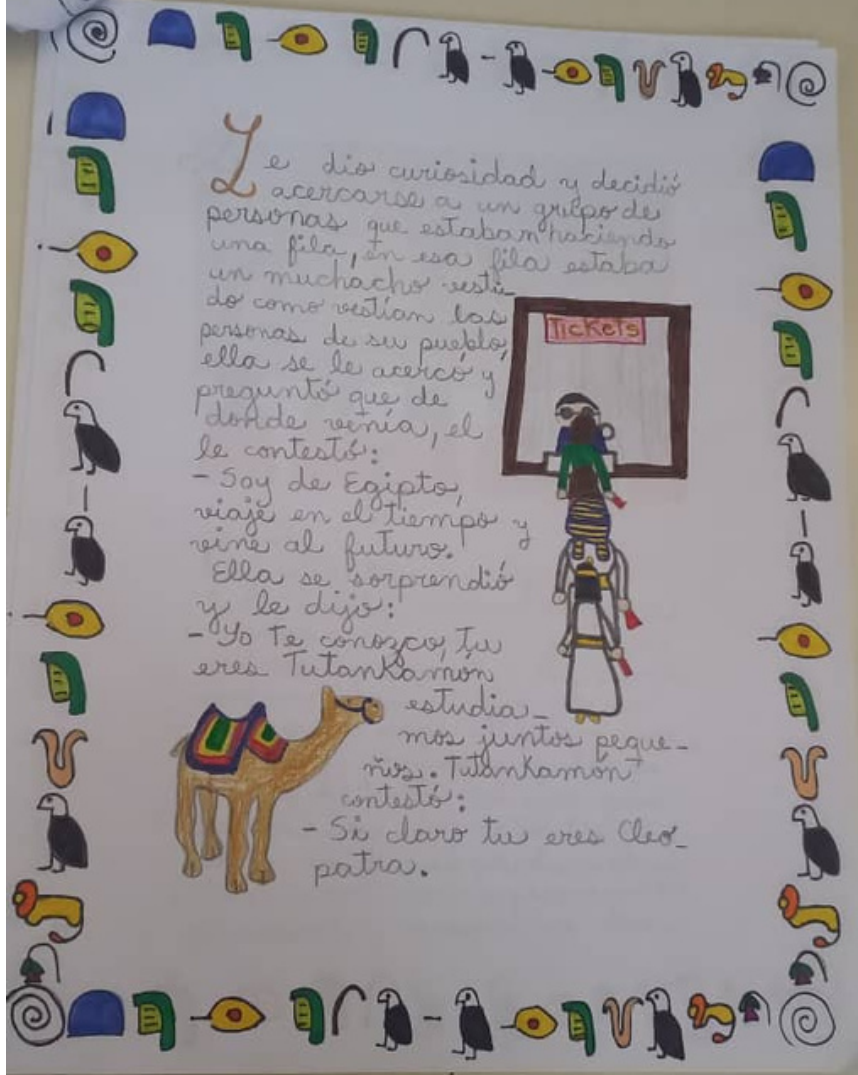 Le dio curiosidad y decidió
acercarse a un grupo de
personas que estaban haciendo
una fila, en esa fila estaba
un muchacho vesti_
do como vestían las
personas de su pueblo,
ella se le acercó y
preguntó que de
donde venía, el
le contestó:
- Soy de Egipto,
viajé en el tiempo y
vine al futuro.
Ella se sorprendió
y le dijo:
- Yo te conozco, tu
eres TutanKamón
estudia_
mos juntos peque_
ños. TutanKamón
contestó:
- Si claro tu eres Cleo_
patra.
Tickets